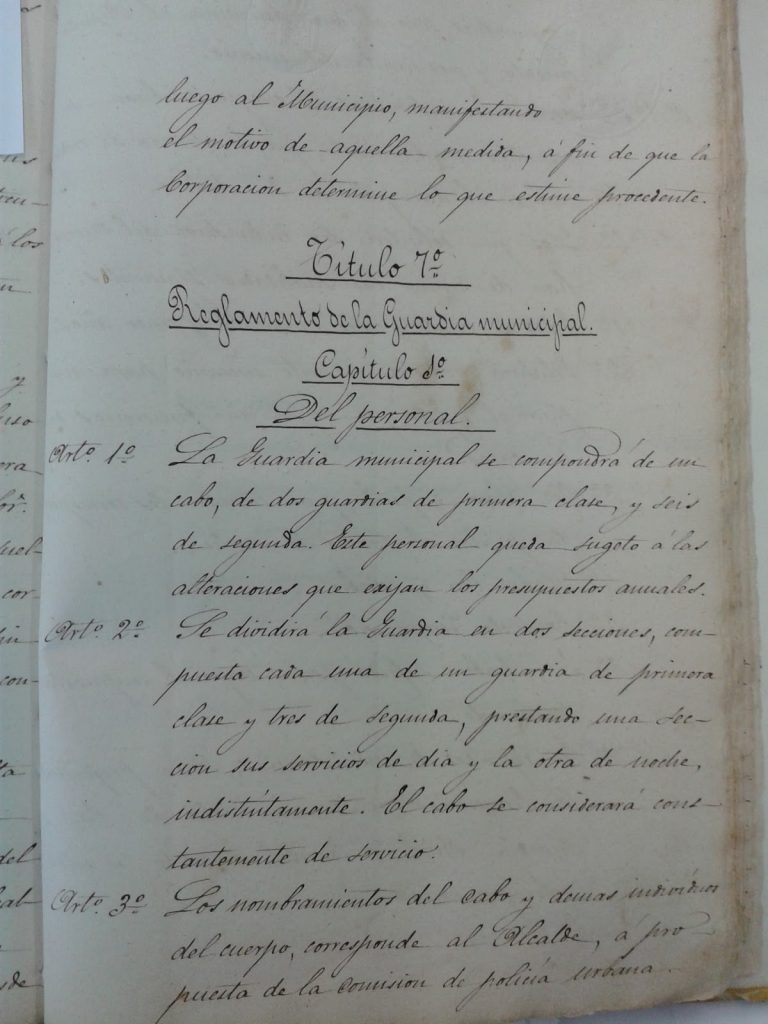 luego al Municipio, manifestando
el motivo de aquella medida, á fin de que la
Corporacion determine lo que estime procedente.
Título 7º
Reglamento de la Guardia municipal.
Capítulo 1º
Del personal.
Artº. 1º La Guardia municipal se compondrá de un
cabo, de dos guardias de primera clase, y seis
de segunda. Este personal queda sugeto á las
alteraciones que exijan los presupuestos anuales.
Artº. 2º Se dividirá la Guardia en dos secciones, com-
puesta cada una de un guardia de primera
clase y tres de segunda, prestando una sec-
cion sus servicios de dia y la otra de noche,
indistíntamente. El cabo se considerará cons-
tantemente de servicio.
Artº. 3º Los nombramientos del cabo y demas indivíduos
del cuerpo, corresponde al Alcalde, á pro-
puesta de la comision de policía urbana.